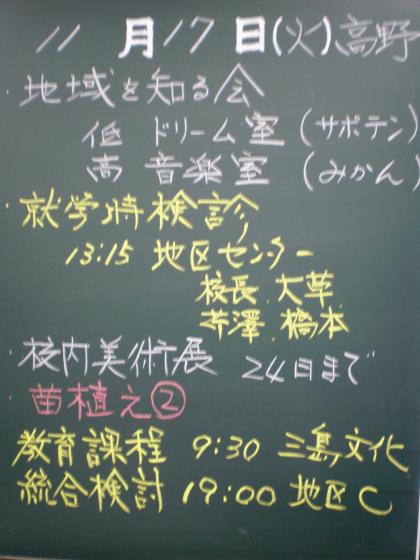 11月17日(火)高野
・地域を知る会
低 ドリーム室(サボテン)
高 音楽室(みかん
・就学時検診
13:15 地区センター
校長、大草、
芹澤、橋本
・校内美術展 24日まで
・苗植え②
教育課程 9:30 三島文化
統合検討 19:00 地区C